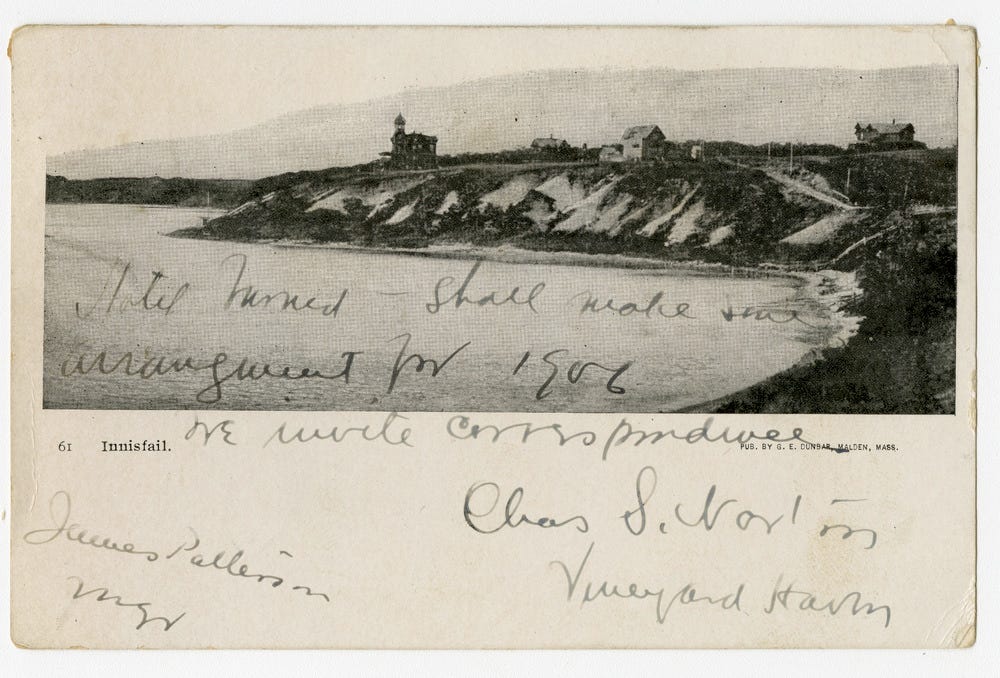 Hotel burned - Shall make some
arrangment for 1906
we invite correspondence
61 Innisfail.
PUB. BY G. E. DUNBAR, MALDEN, MASS.
Chas S. Norton
Vineyard Haven
James Patterson
Mgr